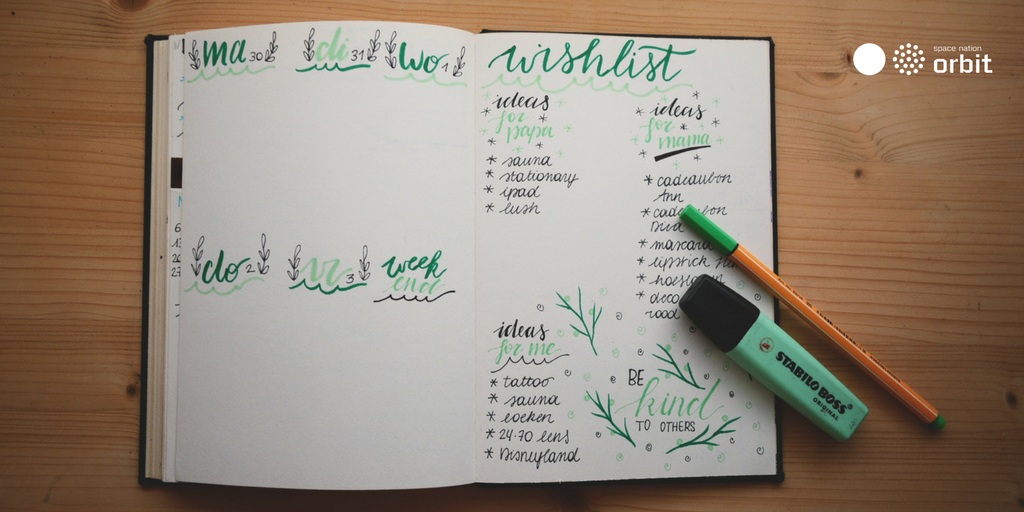 ma 30
di 31
wo 1
do 2
vr 3
week
end
wishlist
ideas
for
papa
* sauna
* stationary
* ipad
* lush
ideas
for
mama
* cadeaubon
Ann
*
* mascara
* lipstick
*
* deco
rood
ideas
for me
* tattoo
* sauna
* boeken
* 24-70 lens
* Disneyland
BE
kind
TO OTHERS
STABILO BOSS
ORIGINAL
space nation
orbit